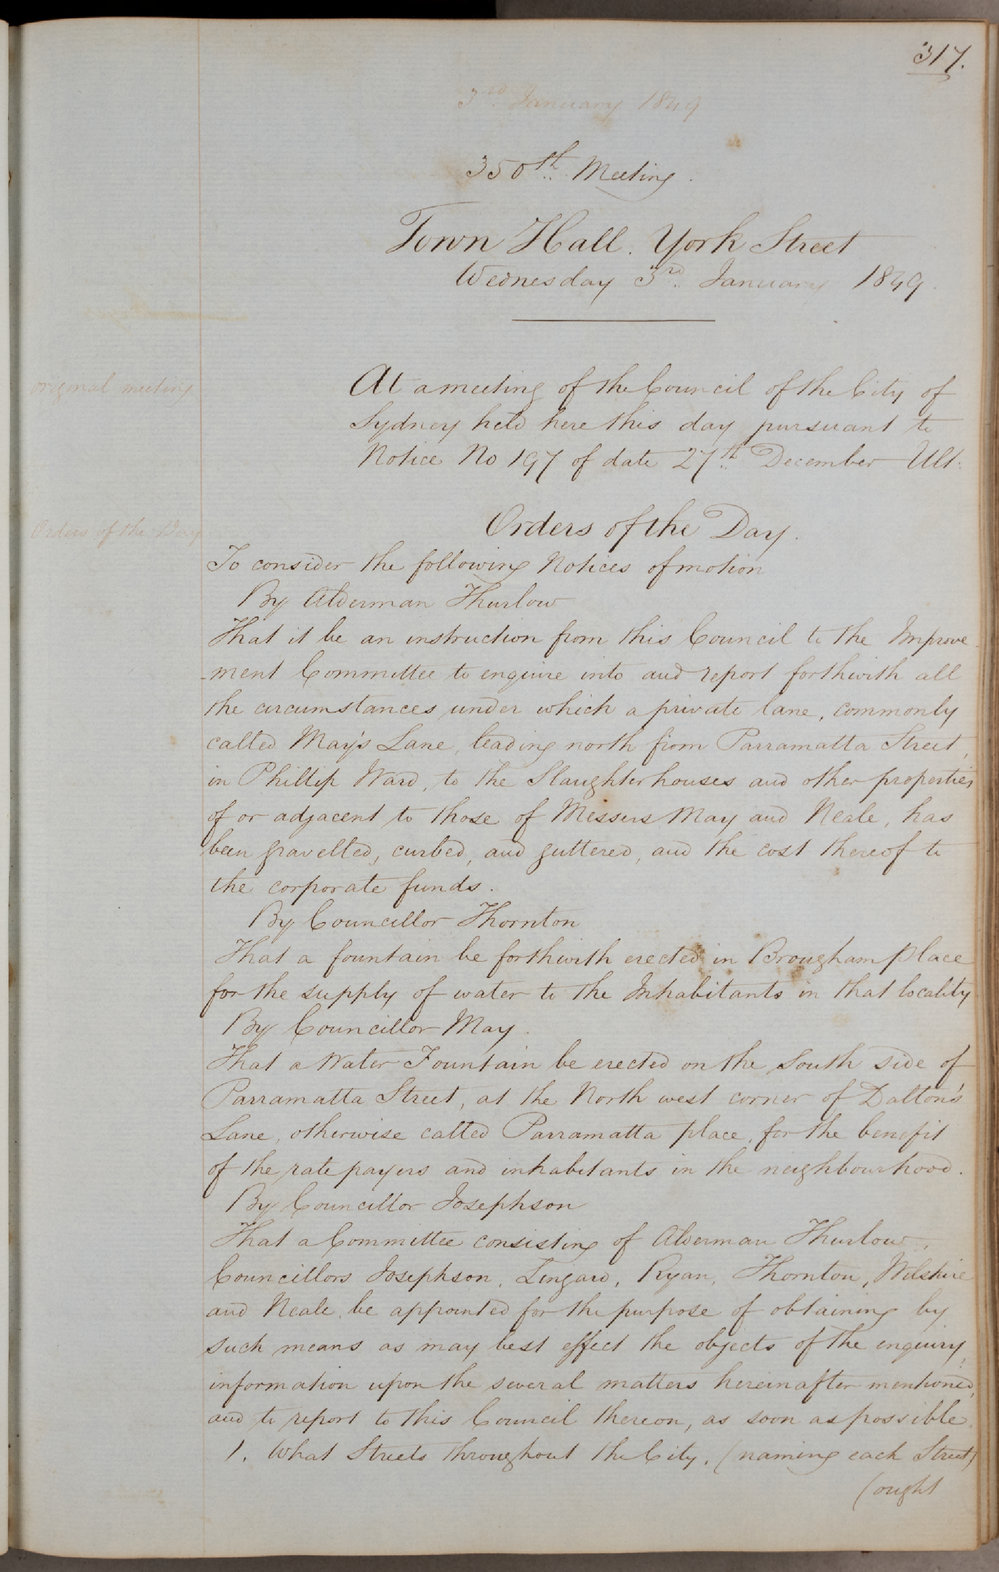 317.
3rd January 1849
350th Meeting.
Town Hall. York Street
Wednesday 3rd. January 1849.
original meeting
At a meeting of the Council of the City of
Sydney held here this day pursuant to
Notice No 197 of date 27th December Ult.
Orders of the Day
Orders of the Day.
To consider the following Notices of motion
By Alderman Thurlow
That it be an instruction from this Council to the Improve
-ment Committee to enquire into and report forthwith all
the circumstances under which a private lane, commonly
called May's Lane, leading north from Parramatta Street,
in Phillip Ward, to the Slaughterhouses and other properties
of or adjacent to those of Messers May and Neale, has
been gravelled, curbed, and guttered, and the cost thereof to
the corporate funds.
By Councillor Thornton
That a fountain be forthwith erected in Brougham place
for the supply of water to the Inhabitants in that locality
By Councillor May.
That a Water Fountain be erected on the South side of
Parramatta Street, at the North west corner of Dalton's
Lane, otherwise called Parramatta place, for the benefit
of the rate payers and inhabitants in the neighbourhood.
By Councillor Josephson
That a Committee consisting of Alderman Thurlow,
Councillors Josephson, Lingard, Ryan, Thornton, Wilshire
and Neale be appointed for the purpose of obtaining by
such means as may best effect the objects of the enquiry,
information upon the several matters hereinafter mentioned,
and to report to this Council thereon, as soon as possible.
1. What Streets throughout the City, (naming each Street)
(ought